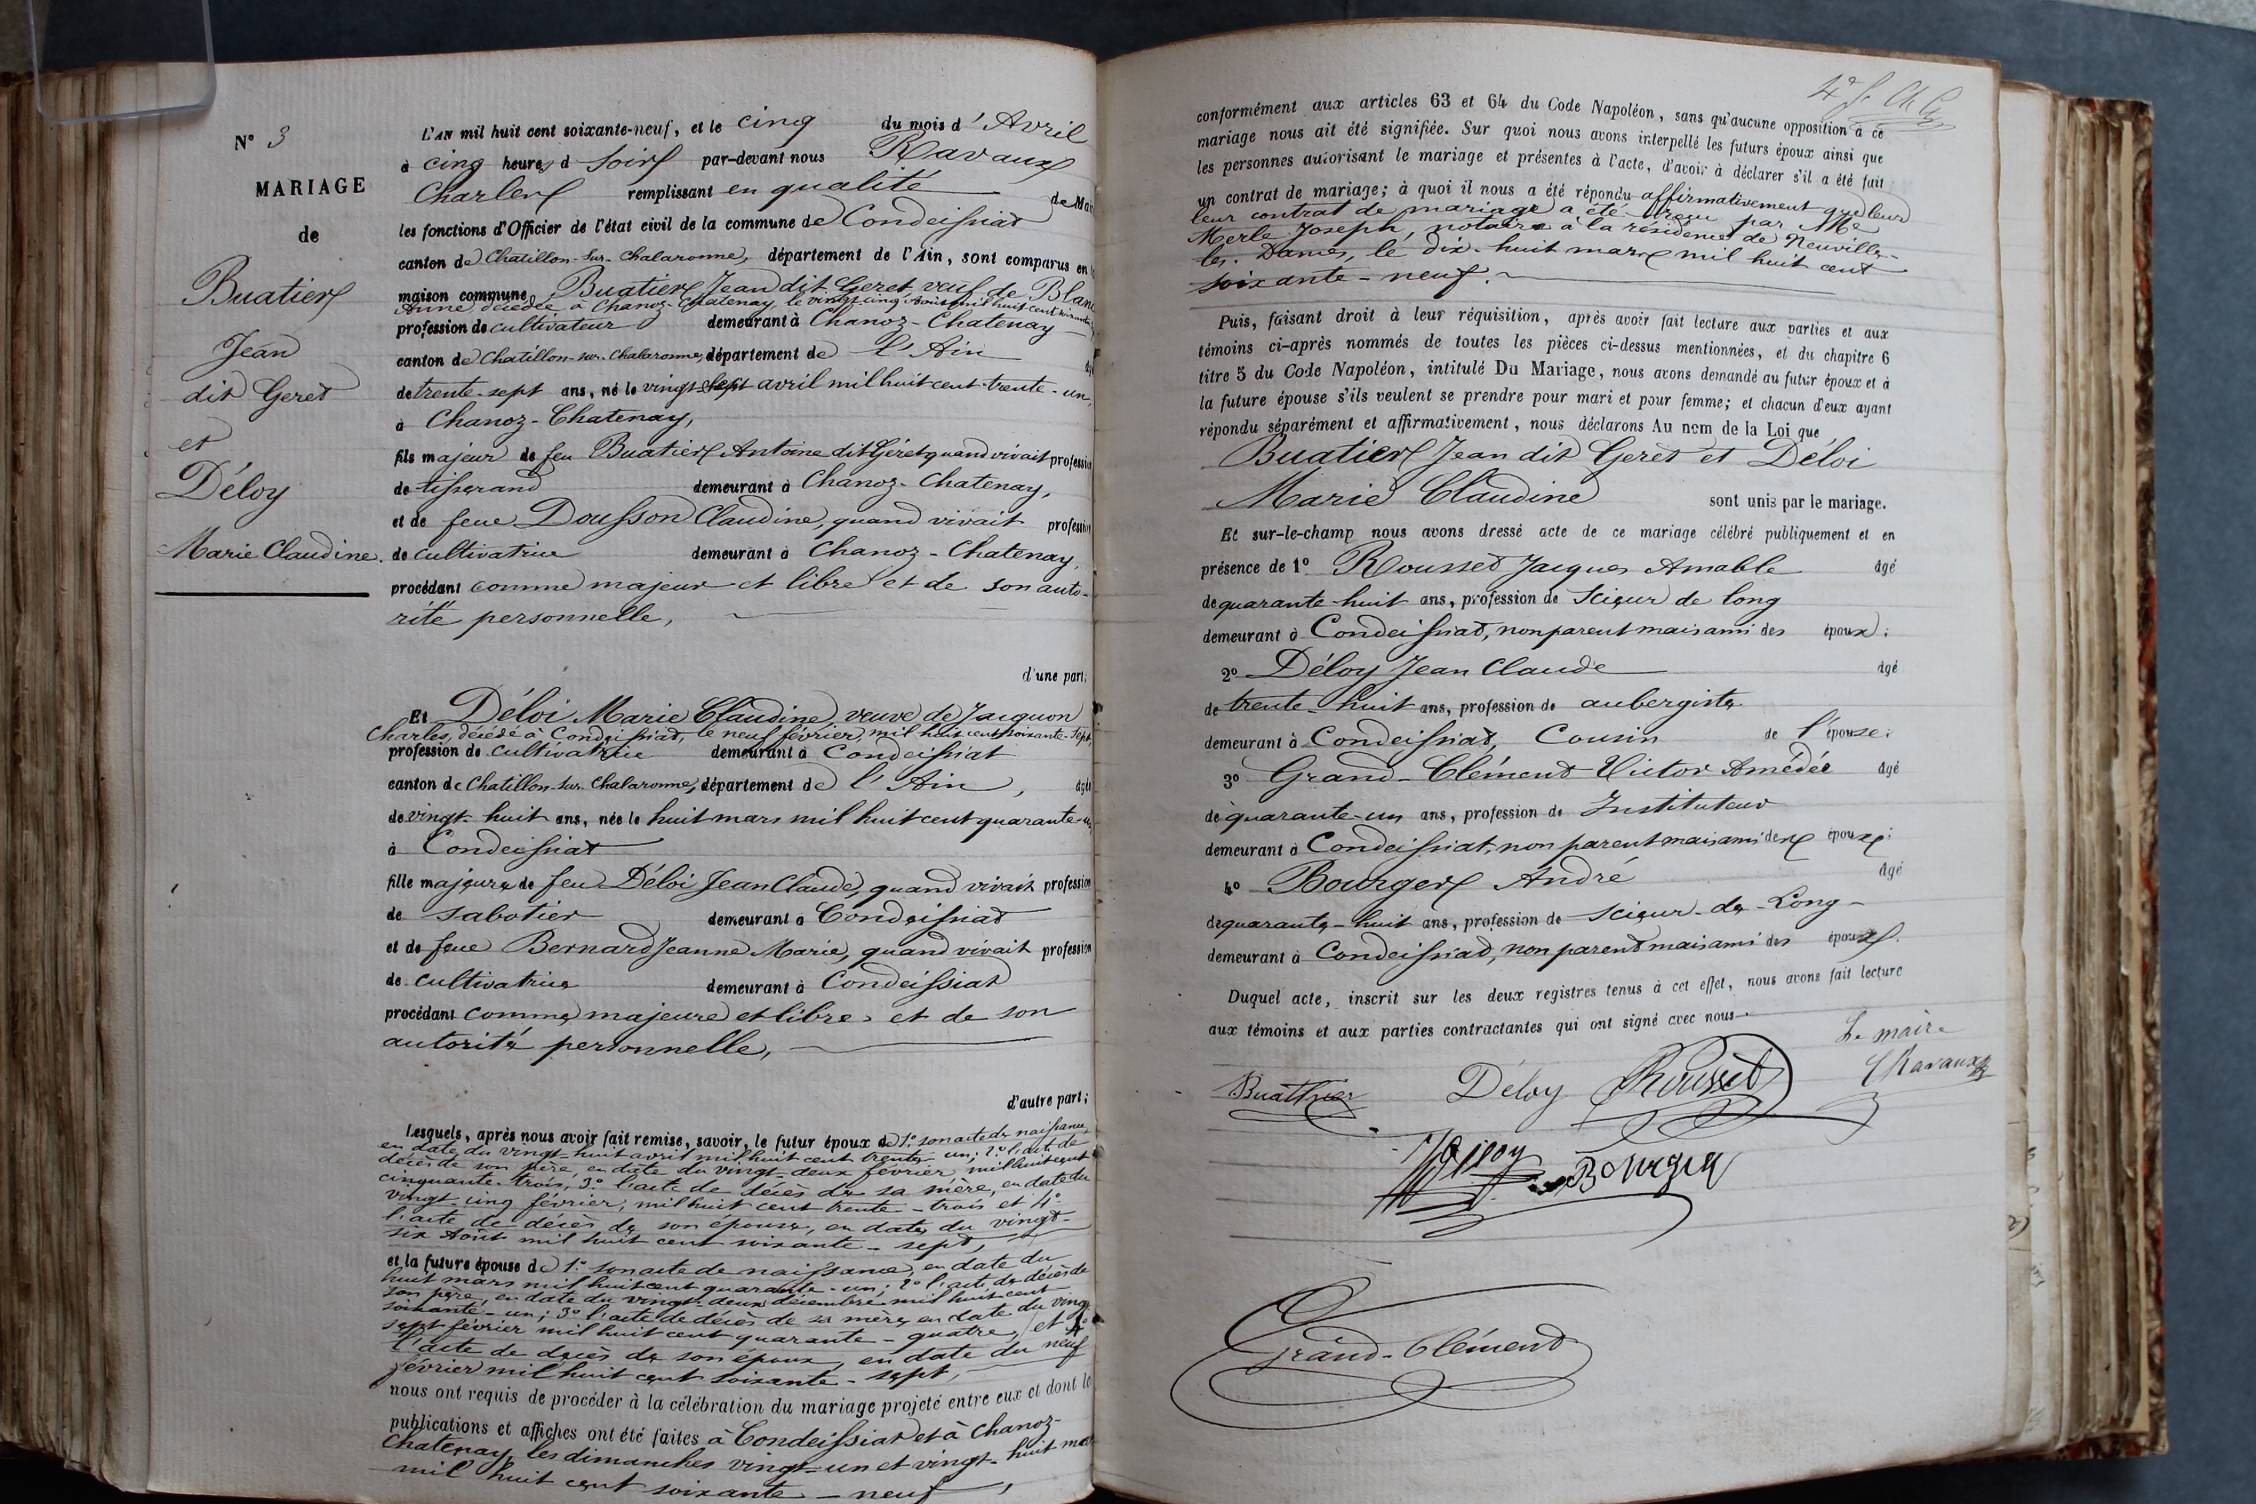 N° 3
MARIAGE
de
Buatier
Jean
dit Geret
et
Déloy
Marie Claudine.
L'AN mil huit cent soixante-neuf, et le cinq du mois d'Avril
à cinq heures d soir par-devant nous Ravaux
Charles remplissant en qualité de Mai
les fonctions d'Officier de l'état civil de la commune de Condeissiat
canton de Chatillon-sur-Chalaronne, département de l'Ain, sont comparus en
maison commune, Buatier Jean dit Geret veuf de Blanc
Anne décédée à Chanoz-Chatenay le vingt cinq Août mil huit cent soixante
profession de cultivateur demeurant à Chanoz-Chatenay
canton de Chatillon-sur-Chalaronne, département de l'Ain
de trente-sept ans, né le vingt sept avril mil huit cent trente-un,
à Chanoz-Chatenay,
fils majeur de feu Buatier Antoine dit Géret, quand vivait profession
de tisserand demeurant à Chanoz-Chatenay,
et de feue Dousson Claudine, quand vivait profession
de cultivatrice demeurant à Chanoz-Chatenay,
procédant comme majeur et libre et de son auto-
rité personnelle,
d'une part;
Et Déloi Marie Claudine, veuve de Jacquon
Charles, décédé à Condeissiat, le neuf février mil huit cent soixante-sept,
profession de cultivatrice demeurant à Condeissiat
canton de Chatillon-sur-Chalaronne, département de l'Ain, âgée
de vingt-huit ans, née le huit mars mil huit cent quarante-un
à Condeissiat
fille majeure de feu Déloi Jean Claude, quand vivait profession
de sabotier demeurant à Condeissiat
et de feue Bernard Jeanne Marie, quand vivait profession
de cultivatrice demeurant à Condeissiat
procédant comme majeure et libre et de son
autorité personnelle,
d'autre part;
Lesquels, après nous avoir fait remise, savoir, le futur époux de 1° son acte de naissance,
en date du vingt-huit avril mil huit cent trente-un; 2° l'acte de
décès de son père, en date du vingt-deux février mil huit cent
cinquante-trois, 3° l'acte de décès de sa mère, en date du
vingt-cinq février, mil huit cent trente-trois et 4°
l'acte de décès de son épouse, en date du vingt-
six Août mil huit cent soixante-sept,
et la future épouse de 1° son acte de naissance, en date du
huit mars mil huit cent quarante-un; 2° l'acte de décès de
son père, en date du vingt-deux décembre mil huit cent
soixante-un; 3° l'acte de décès de sa mère, en date du vingt
sept février mil huit cent quarante-quatre, et 4°
l'acte de décès de son époux, en date du neuf
février mil huit cent soixante-sept,
nous ont requis de procéder à la célébration du mariage projeté entre eux et dont le
publications et affiches ont été faites à Condeissiat et à Chanoz-
Chatenay, les dimanches vingt-un et vingt-huit mars
mil huit cent soixante-neuf,
conformément aux articles 63 et 64 du Code Napoléon, sans qu'aucune opposition à ce
mariage nous ait été signifiée. Sur quoi nous avons interpellé les futurs époux ainsi que
les personnes autorisant le mariage et présentes à l'acte, d'avoir à déclarer s'il a été fait
un contrat de mariage; à quoi il nous a été répondu affirmativement que leur
leur contrat de mariage a été reçu par Me
Merle Joseph, notaire à la résidence de Neuville-
les-Dames, le dix-huit mars mil huit cent
soixante-neuf.
Puis, faisant droit à leur réquisition, après avoir fait lecture aux parties et aux
témoins ci-après nommés de toutes les pièces ci-dessus mentionnées, et du chapitre 6
titre 5 du Code Napoléon, intitulé Du Mariage, nous avons demandé au futur époux et à
la future épouse s'ils veulent se prendre pour mari et pour femme; et chacun d'eux ayant
répondu séparément et affirmativement, nous déclarons Au nom de la Loi que
Buatier Jean dit Gerèt et Déloi
Marie Claudine sont unis par le mariage.
Et sur-le-champ nous avons dressé acte de ce mariage célébré publiquement et en
présence de 1° Rousset Jacques Amable âgé
de quarante-huit ans, profession de Scieur de long
demeurant à Condeissiat, non parent mais ami des époux;
2° Déloy Jean Claude âgé
de trente-huit ans, profession de aubergiste
demeurant à Condeissiat, Cousin de l'épouse;
3° Grand-Clément Victor Amédée âgé
de quarante-un ans, profession de Instituteur
demeurant à Condeissiat, non parent mais ami des époux;
4° Bourger André âgé
de quarante-huit ans, profession de Scieur-de-Long-
demeurant à Condeissiat, non parent mais ami des époux.
Duquel acte, inscrit sur les deux registres tenus à cet effet, nous avons fait lecture
aux témoins et aux parties contractantes qui ont signé avec nous.
Le maire
Buathier Déloy Rousset Ravaux
Bourger
Grand-Clément